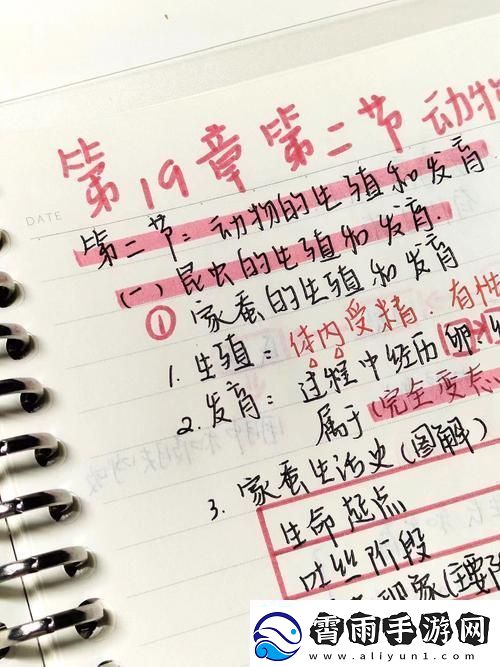 第19章第二节 动物
DATE
第二节：动物的生殖和发育.
(一) 昆虫的生殖和发育.
① 家蚕的生殖和发育
1. 生殖：体内受精．有性
2. 发育：过程中经历卵
属于(完全变态
3. 家蚕生活史(图解)
生命起点
吐丝阶段
霄雨手游网
www.aliyun1.com